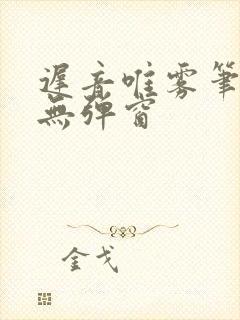 遲音唯雾筆
無弹窗
金戈